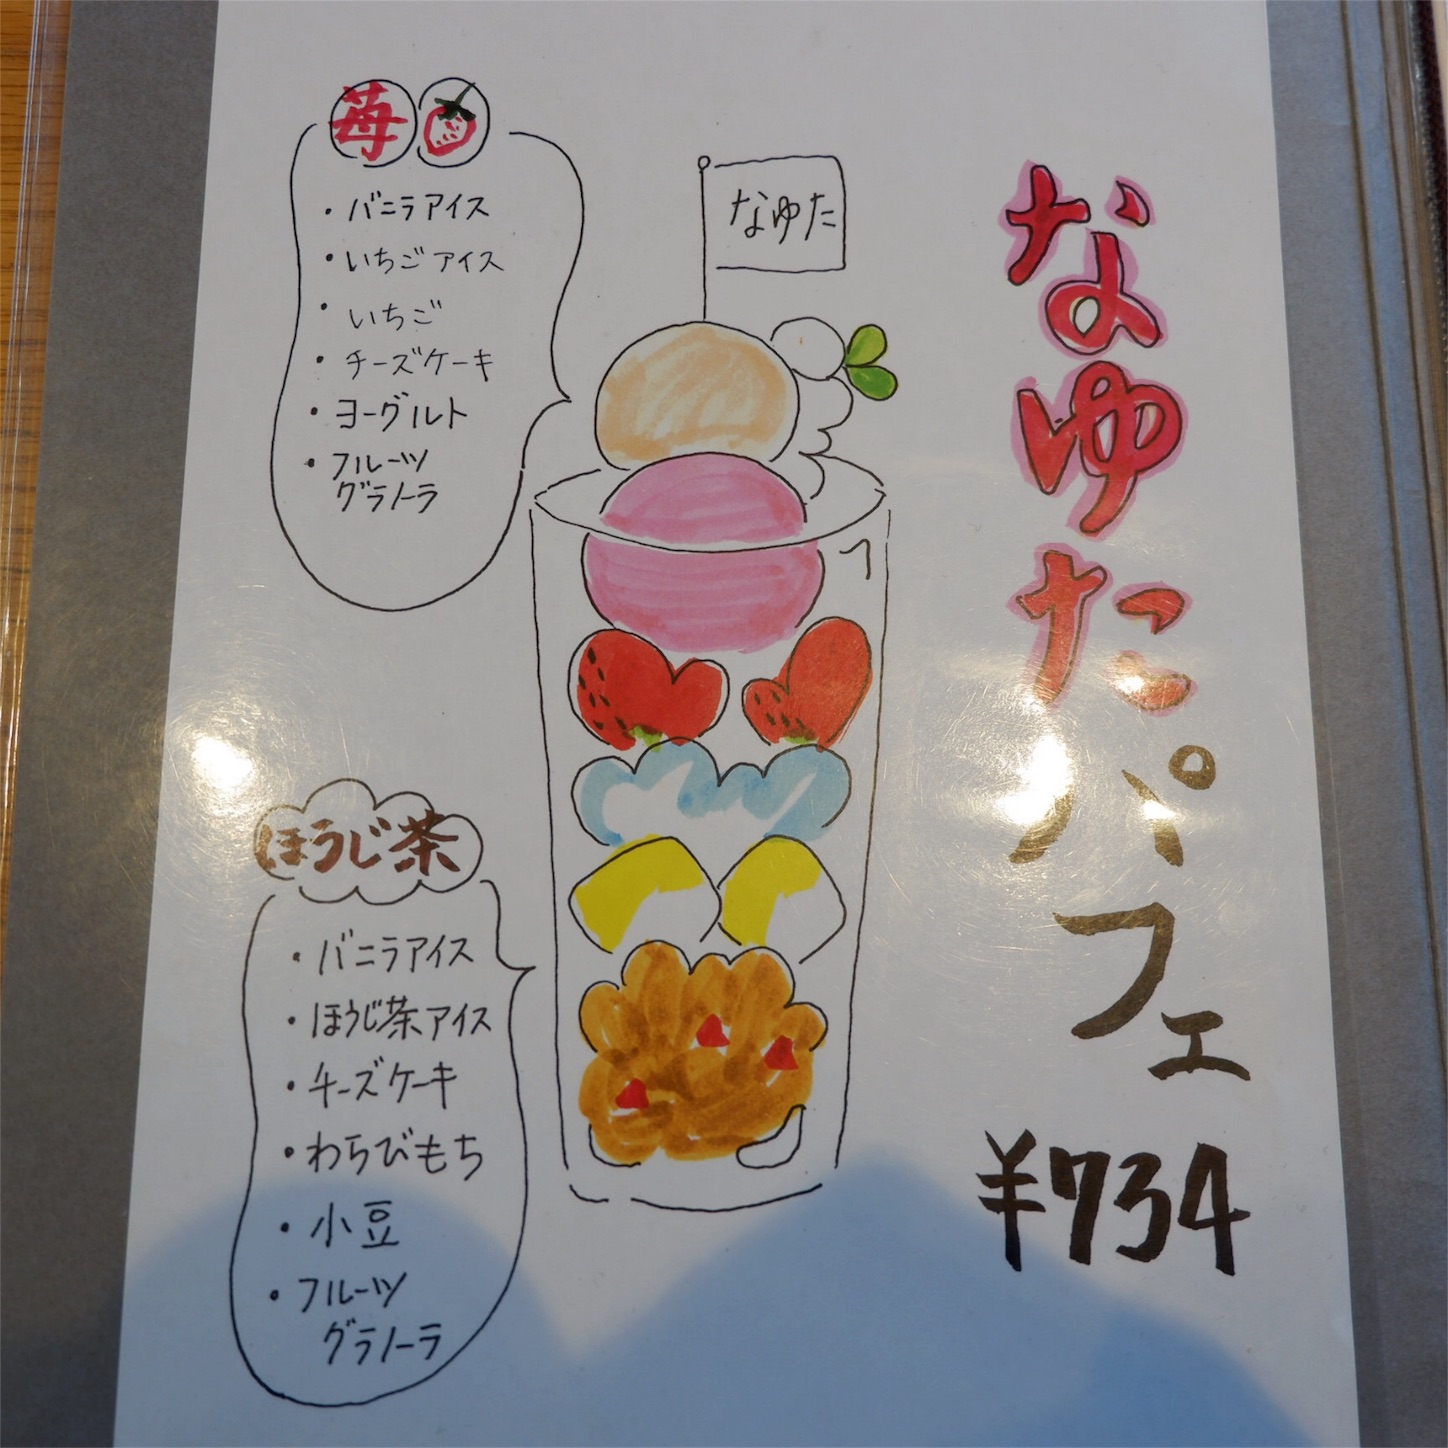 なゆたパフェ
¥734
なゆた
苺
・バニラアイス
・いちごアイス
・いちご
・チーズケーキ
・ヨーグルト
・フルーツ
グラノーラ
ほうじ茶
・バニラアイス
・ほうじ茶アイス
・チーズケーキ
・わらびもち
・小豆
・フルーツ
グラノーラ